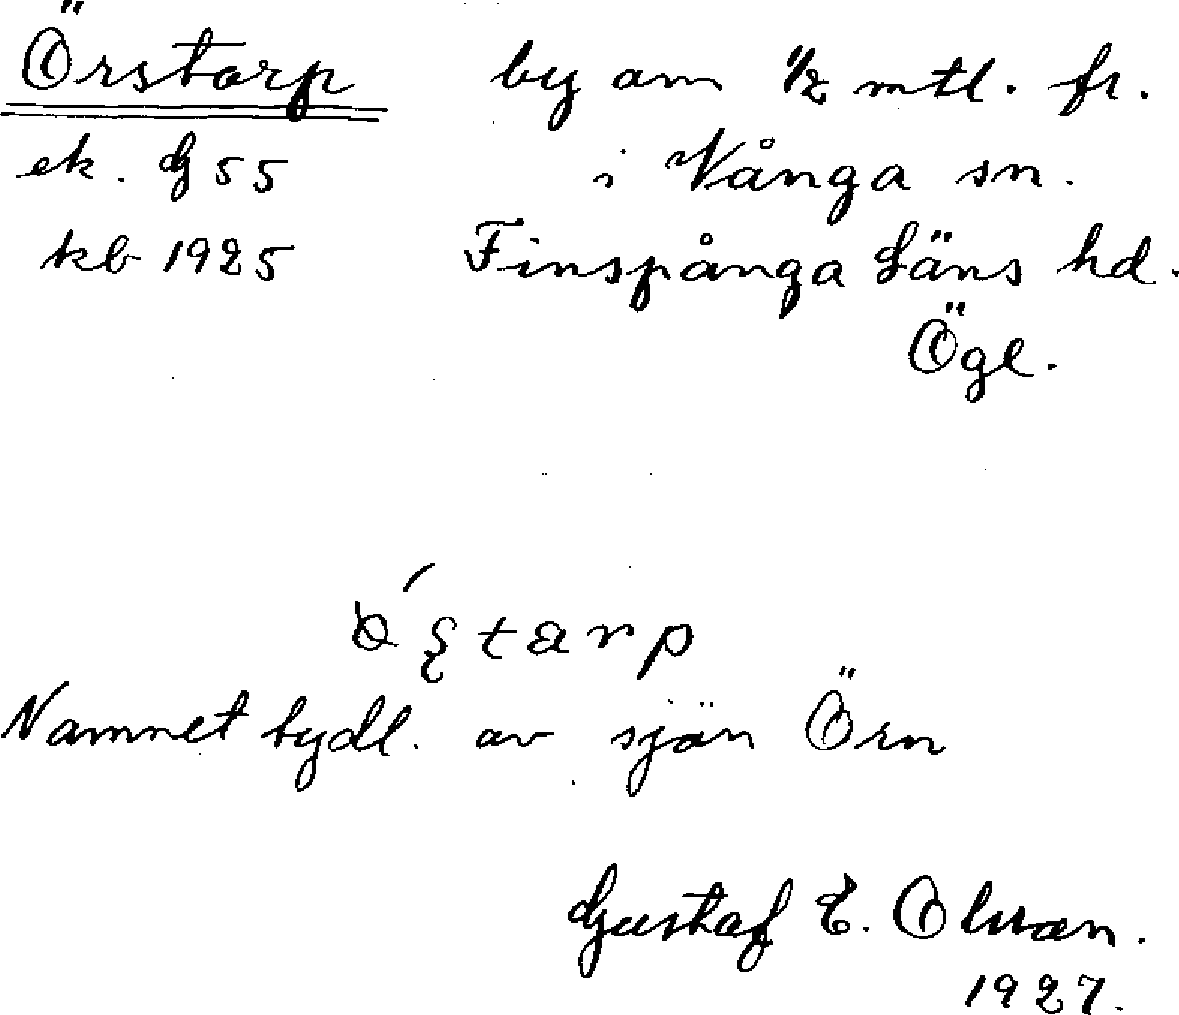 Örstorp by om 1/2 mtl. fr.
ek. G 55 i Vånga sn.
kb 1925 Finspånga Läns hd.
Ögl.
Namnet tydl. av sjön Örn
Gustaf E. Olsson.
1927.